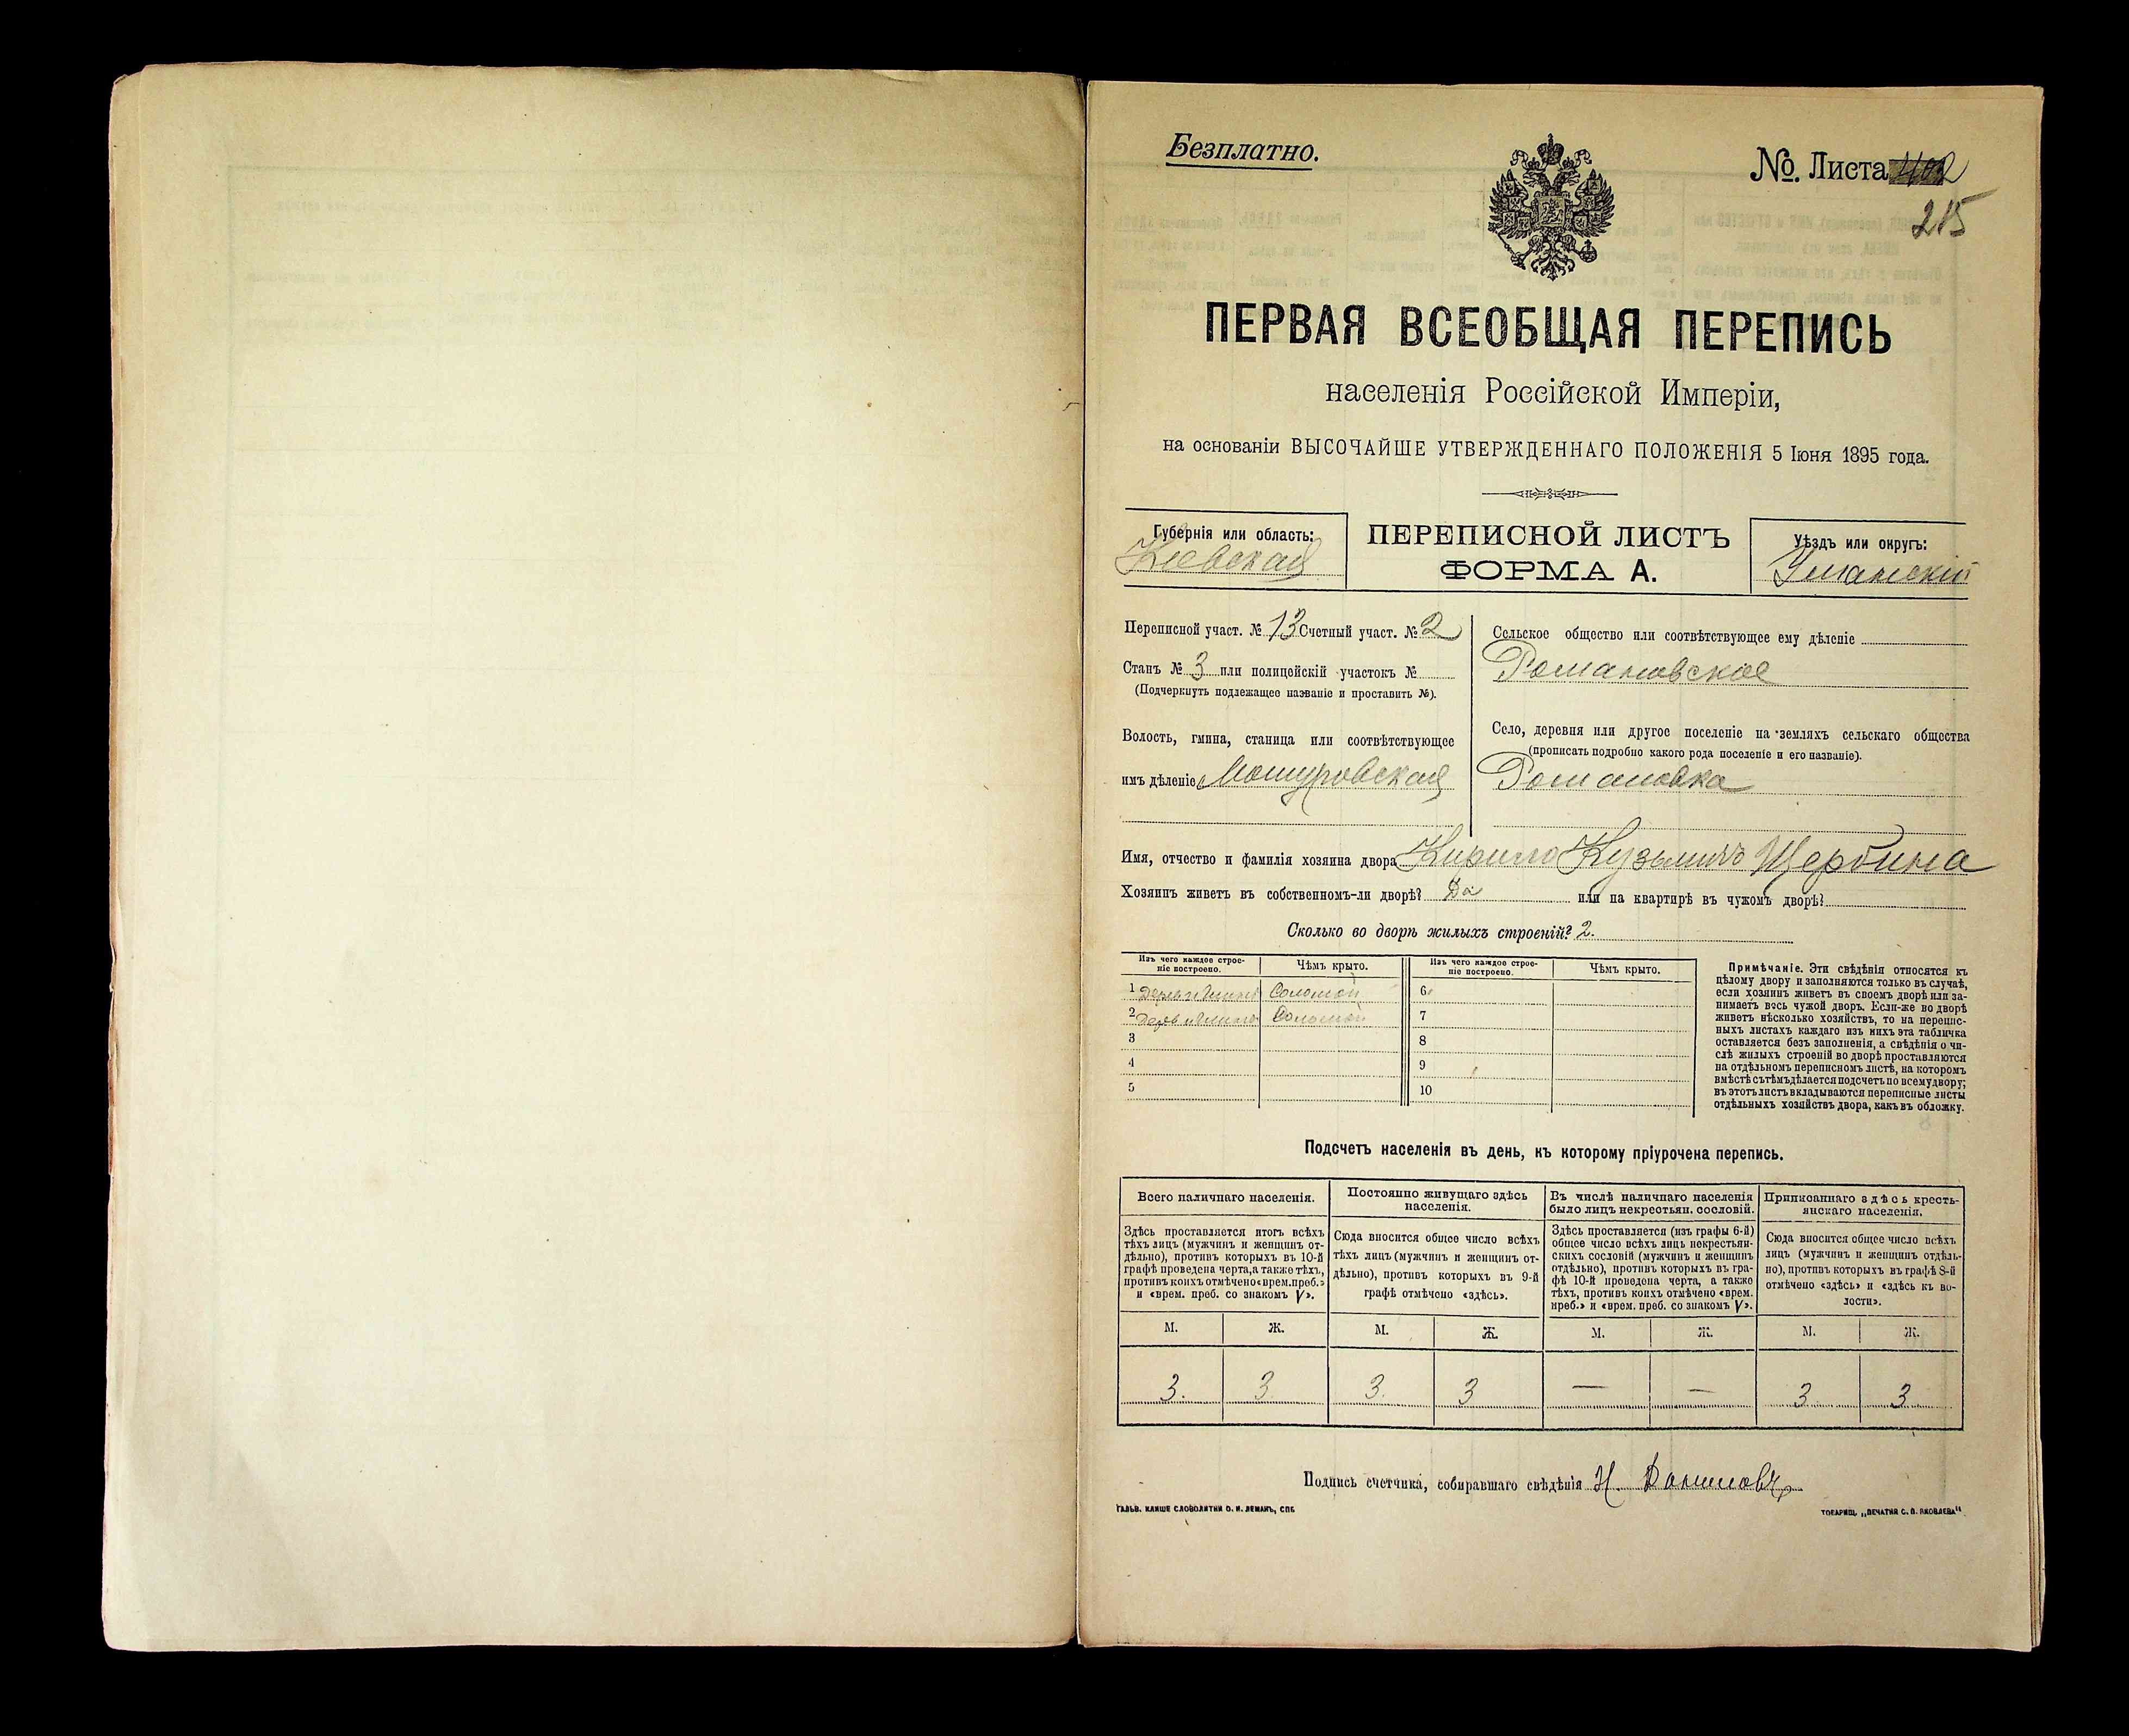 Безплатно.
№. Листа 402
215
ПЕРВАЯ ВСЕОБЩАЯ ПЕРЕПИСЬ
населенія Россійской Имперіи,
на основаніи ВЫСОЧАЙШЕ УТВЕРЖДЕННАГО ПОЛОЖЕНІЯ 5 Іюня 1895 года.
Губернія или область:
Кіевская
ПЕРЕПИСНОЙ ЛИСТЪ
ФОРМА А.
Уѣздъ или округъ:
Уманскій
Переписной участ. № 13 Счетный участ. № 2
Станъ № 3 или полицейскій участокъ №
(Подчеркнуть подлежащее названіе и проставить №).
Волость, гмина, станица или соотвѣтствующее
имъ дѣленіе Мошуровская
Сельское общество или соотвѣтствующее ему дѣленіе
Романовское
Село, деревня или другое поселеніе на земляхъ сельскаго общества
(прописать подробно какого рода поселеніе и его названіе).
Романовка
Имя, отчество и фамилія хозяина двора Кирило Кузьмичъ Щербина
Хозяинъ живетъ въ собственномъ-ли дворѣ? Да или на квартирѣ въ чужомъ дворѣ?
Сколько во дворѣ жилыхъ строеній? 2.
Изъ чего каждое строе-
ніе построено.
Чѣмъ крыто.
Изъ чего каждое строе-
ніе построено.
Чѣмъ крыто.
1 Соломой 6
2 Соломой 7
3 8
4 9
5 10
Примѣчаніе. Эти свѣдѣнія относятся къ
цѣлому двору и заполняются только въ случаѣ,
если хозяинъ живетъ въ своемъ дворѣ или за-
нимаетъ весь чужой дворъ. Если-же во дворѣ
живетъ нѣсколько хозяйствъ, то на перепис-
ныхъ листахъ каждаго изъ нихъ эта табличка
оставляется безъ заполненія, а свѣдѣнія о чи-
слѣ жилыхъ строеній во дворѣ проставляются
на отдѣльномъ переписномъ листѣ, на которомъ
вмѣстѣ съ тѣмъ дѣлается подсчетъ по всему двору;
въ этотъ листъ вкладываются переписные листы
отдѣльныхъ хозяйствъ двора, какъ въ обложку.
Подсчетъ населенія въ день, къ которому пріурочена перепись.
Всего наличнаго населенія.
Здѣсь проставляется итогъ всѣхъ
тѣхъ лицъ (мужчинъ и женщинъ от-
дѣльно), противъ которыхъ въ 10-й
графѣ проведена черта, а также тѣхъ,
противъ коихъ отмѣчено «врем. преб.»
и «врем. преб. со знакомъ V».
Постоянно живущаго здѣсь
населенія.
Сюда вносится общее число всѣхъ
тѣхъ лицъ (мужчинъ и женщинъ от-
дѣльно), противъ которыхъ въ 9-й
графѣ отмѣчено «здѣсь».
Въ числѣ наличнаго населенія
было лицъ некрестьян. сословій.
Здѣсь проставляется (изъ графы 6-й)
общее число всѣхъ лицъ некрестьян-
скихъ сословій (мужчинъ и женщинъ
отдѣльно), противъ которыхъ въ гра-
фѣ 10-й проведена черта, а также
тѣхъ, противъ коихъ отмѣчено «врем.
преб.» и «врем. преб. со знакомъ V».
Приписаннаго здѣсь кресть-
янскаго населенія.
Сюда вносится общее число всѣхъ
лицъ (мужчинъ и женщинъ отдѣль-
но), противъ которыхъ въ графѣ 8-й
отмѣчено «здѣсь» и «здѣсь къ во-
лости».
М. Ж. М. Ж. М. Ж. М. Ж.
3. 3. 3. 3 — — 3 3
Подпись счетчика, собиравшаго свѣдѣнія Н. Даниловъ
ГАЛЬВ. КЛИШЕ СЛОВОЛИТНИ О. И. ЛЕМАНЪ, СПБ
ТОВАРИЩ. „ПЕЧАТНЯ С. П. ЯКОВЛЕВА"